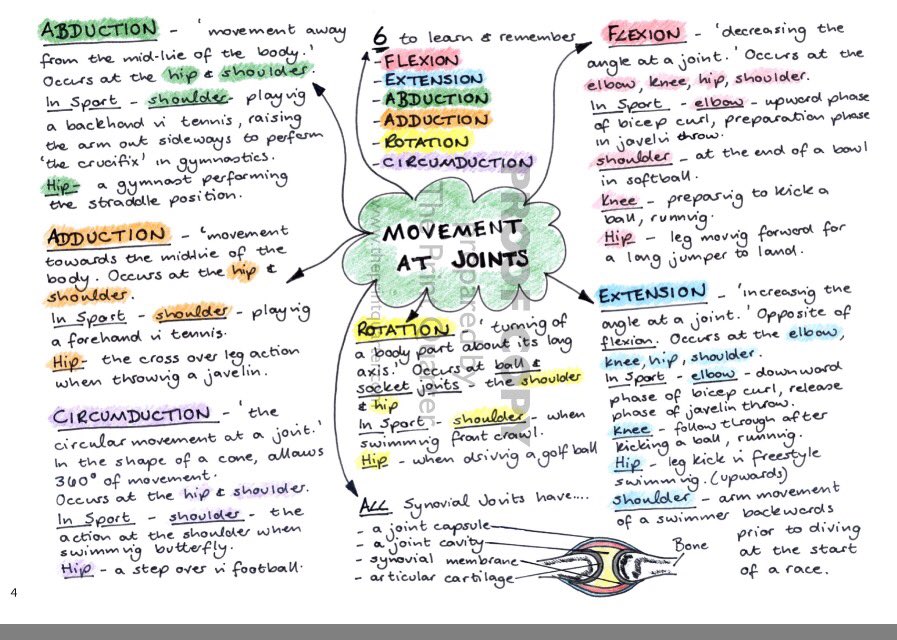 ABDUCTION - 'movement away
from the mid-line of the body.'
Occurs at the hip & shoulder.
In Sport - shoulder - playing
a backhand in tennis, raising
the arm out sideways to perform
'the crucifix' in gymnastics.
Hip - a gymnast performing
the straddle position.
ADDUCTION - 'movement
towards the midline of the
body. Occurs at the hip &
shoulder.
In Sport - shoulder - playing
a forehand in tennis.
Hip - the cross over leg action
when throwing a javelin.
CIRCUMDUCTION - 'the
circular movement at a joint.'
In the shape of a cone, allows
360° of movement.
Occurs at the hip & shoulder.
In Sport - shoulder - the
action at the shoulder when
swimming butterfly.
Hip - a step over in football.
6 to learn & remember
- FLEXION
- EXTENSION
- ABDUCTION
- ADDUCTION
- ROTATION
- CIRCUMDUCTION
MOVEMENT
AT JOINTS
PROOF COPY
prepared by
The Print Quarter
ROTATION - 'turning of
a body part about its long
axis.' Occurs at ball &
socket joints - the shoulder
& hip
In Sport - shoulder - when
swimming front crawl.
Hip - when driving a golf ball
ALL Synovial Joints have....
- a joint capsule
- a joint cavity
- synovial membrane
- articular cartilage
Bone
FLEXION - 'decreasing the
angle at a joint.' Occurs at the
elbow, knee, hip, shoulder.
In Sport - elbow - upward phase
of bicep curl, preparation phase
in javelin throw.
shoulder - at the end of a bowl
in softball.
Knee - preparing to kick a
ball, running.
Hip - leg moving forward for
a long jumper to land.
EXTENSION - 'increasing the
angle at a joint.' Opposite of
flexion. Occurs at the elbow,
knee, hip, shoulder.
In Sport - elbow - downward
phase of bicep curl, release
phase of javelin throw.
Knee - follow through after
kicking a ball, running.
Hip - leg kick in freestyle
swimming. (upwards)
shoulder - arm movement
of a swimmer backwards
prior to diving
at the start
of a race.
4